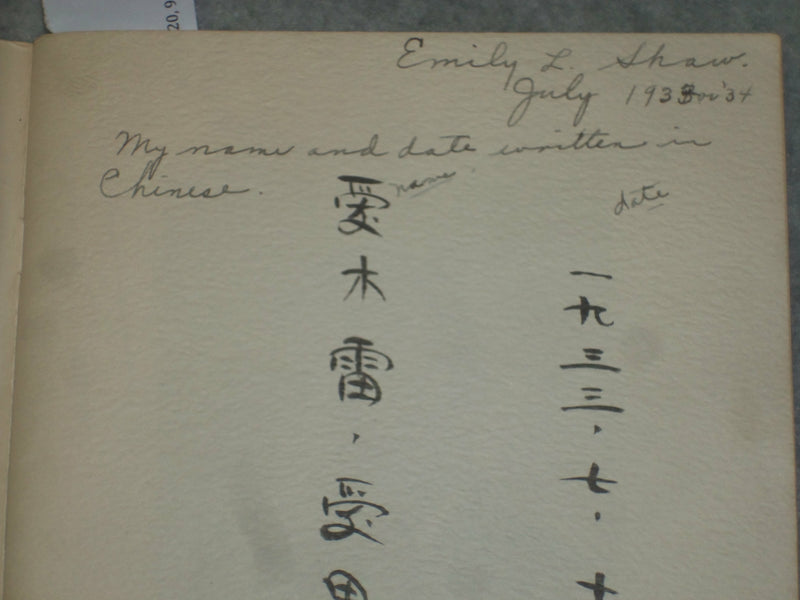 20,9
Emily L. Shaw.
July 1933 or '34
My name and date written in
Chinese.
name.
date
愛木雷・愛
一九三三・七・十